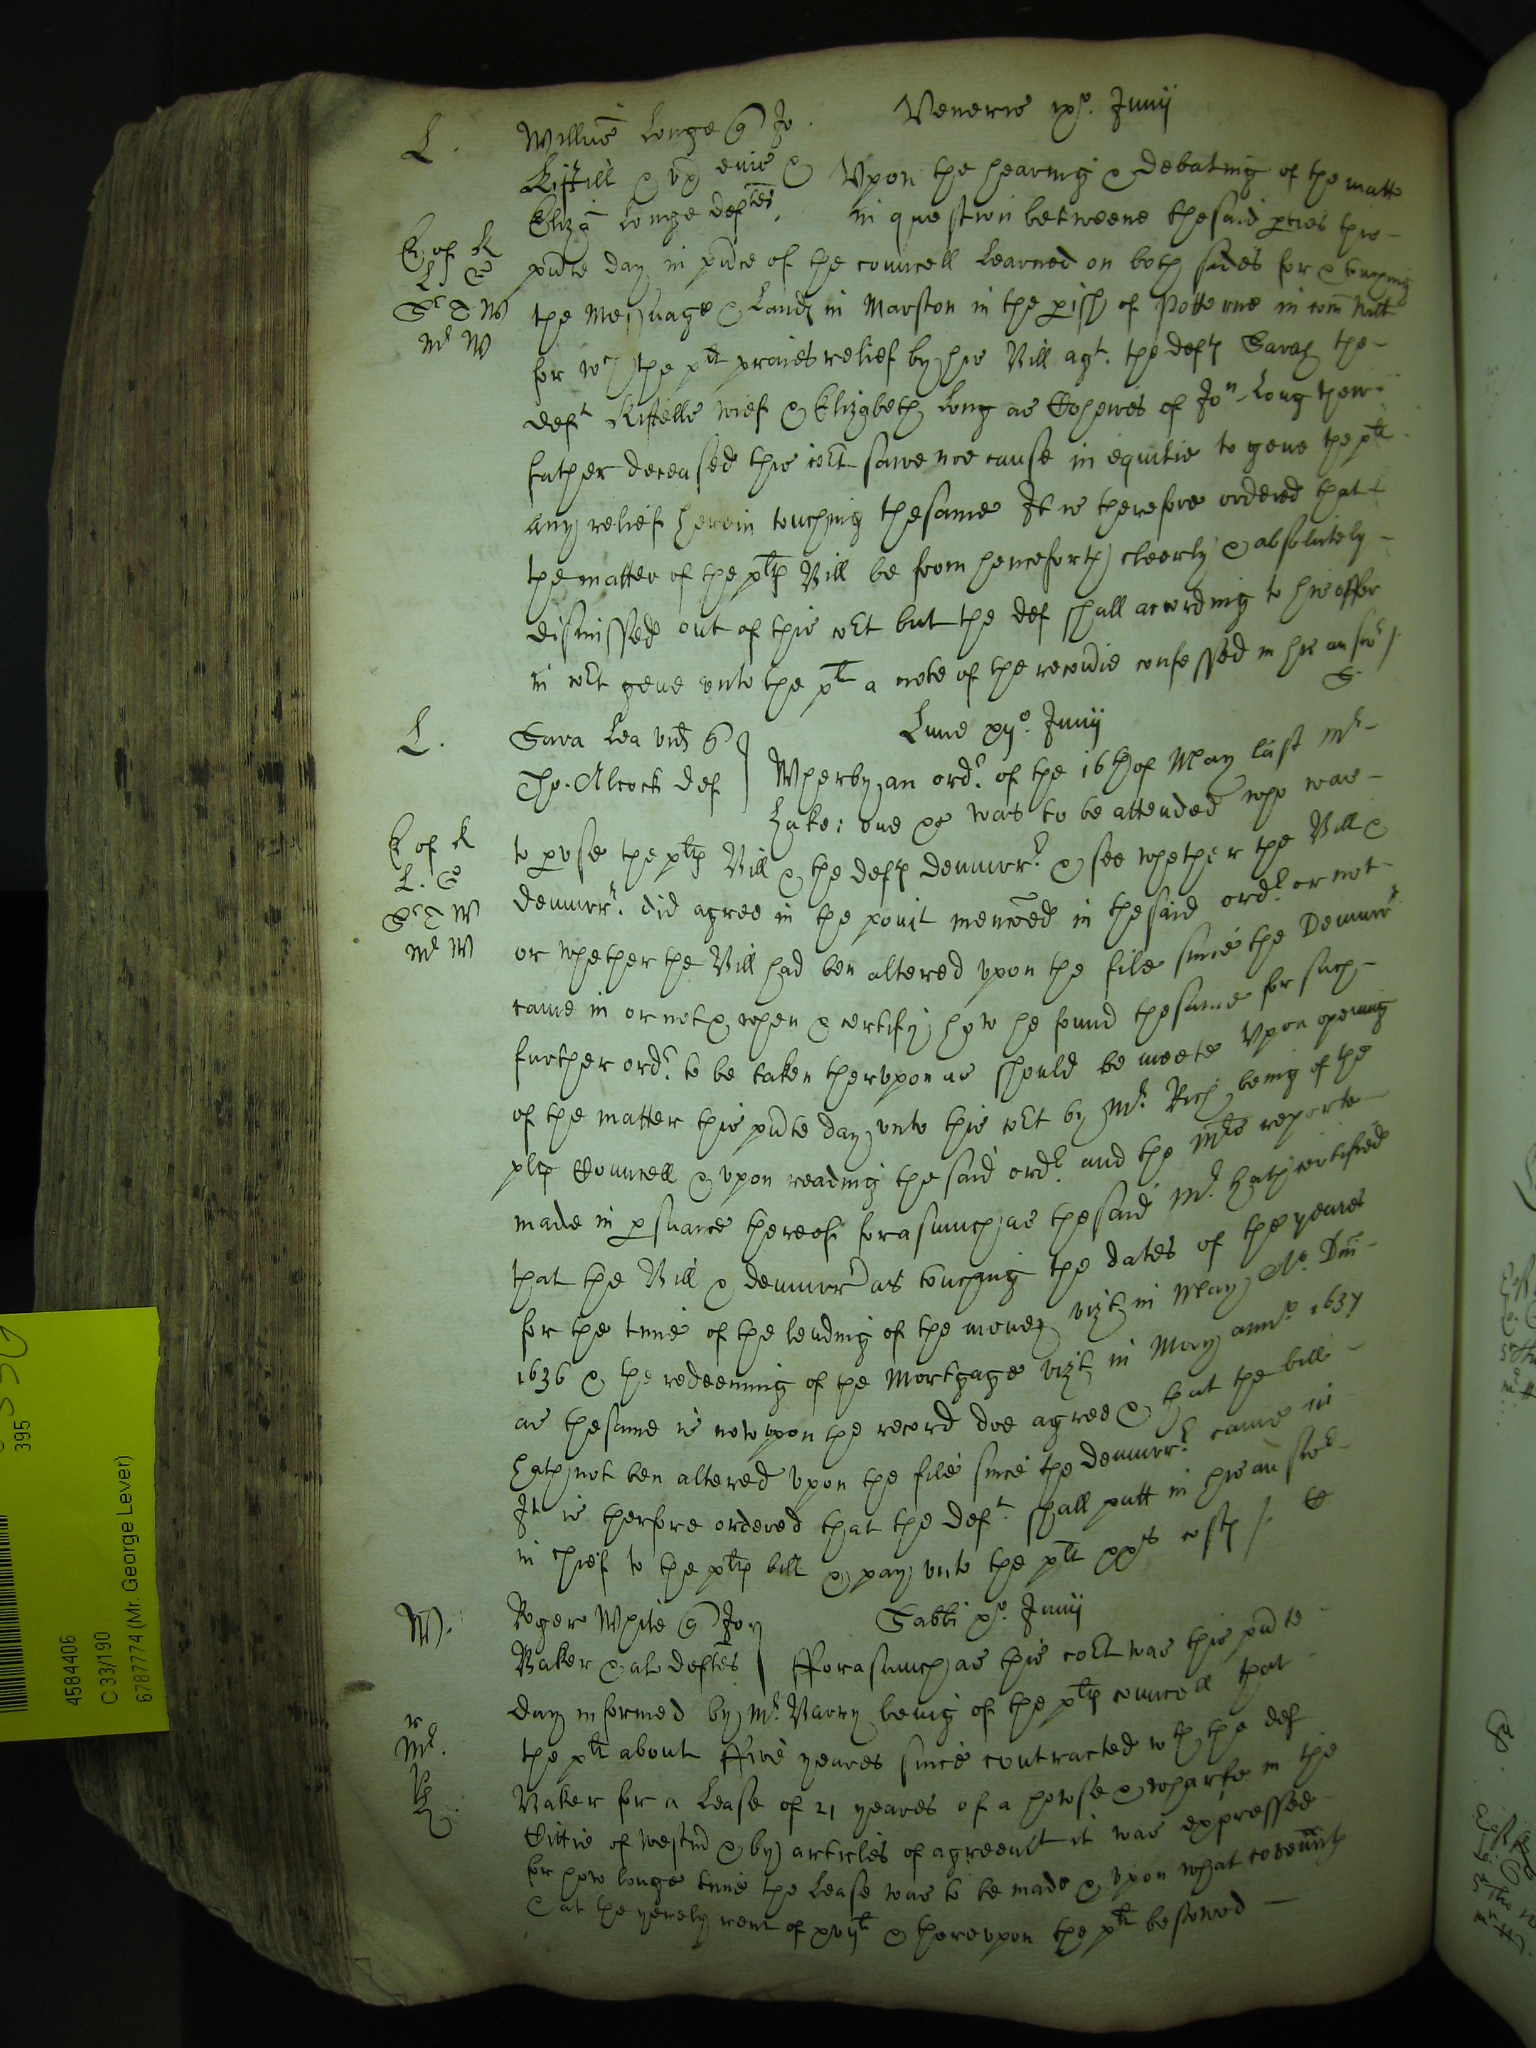 Veneris ixo. Junij
L. Willus Longe q Jo.
Kistell & ux eius & Upon the hearing & debating of the matter
Eliza Longe deftes. in question betweene the said pties this
pnte day in pnce of the councell Learned on both sides for & touching
the Messuage & Landes in Marston in the pish of Potterne in com Wilt
for wch the plt praies relief by his Bill agt. the deftes Sarah the
deft Kistells wief & Elizabeth Long as Coheires of Jon Long their
father deceased this cort sawe noe cause in equitie to geve the plt
any relief herein touching thesame It is therefore ordered that
the matter of the pltes Bill be from henceforth cleerly & absolutely
dismissed out of this cort but the def shall according to his offer
in cort geve unto the plt a note of the recordie confessed in his answr
L. Sara Lea vid q Lune xijo. Junij
Tho. Alcock def Wherby an ordr. of the 16th of May last Mr
was to be attended who was
to pvse the pltes Bill & the deftes demurrr. & see whether the Bill &
demurrr. did agree in the point mencoed in thesaid ordr. or not
or whether the Bill had ben altered upon the file since the Demurrr
came in or not & when & certify how he found thesame for such
further ordr. to be taken therupon as should be meete Upon opening
of the matter this pnte day unto this cort by Mr. Rich being of the
pltes Councell & upon reading the said ordr. and the Mrs reporte
made in psuance thereof forasmuch as thesaid Mr. hath certified
that the Bill & demurrr as touching the dates of the yeares
for the time of the lending of the money vizt in May Ao. Dni
1636 & the redeeming of the Mortgage vizt in May anno. 1637
as thesame is now upon the record doe agree & that the bill
hath not ben altered upon the file since the demurrr. came in
It is therfore ordered that the deft. shall putt in his answer
in chief to the pltes bill & pay unto the plt xxs costes
W. Roger White q Joh Sabbi xo. Junij
Baker & al deftes Fforasmuch as this cort was this pnte
day informed by Mr. Barry being of the pltes councell that
the plt about ffive yeares since contracted wth the def
Baker for a Lease of 21 yeares of a howse & wharfe in the
Cittie of Westmr & by articles of agreemt it was expressed
for how longe time the Lease was to be made & upon what covenntes
& at the yerely rent of xvijli & thereupon the plt bestowed
395
4584406
C 33/190
6787774 (Mr. George Lever)